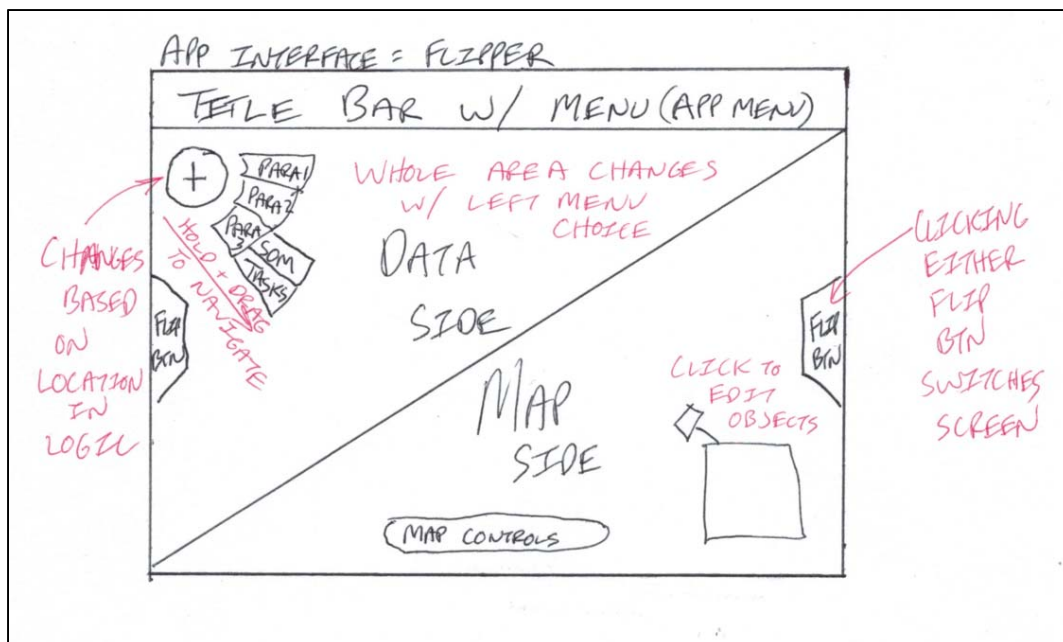 APP INTERFACE = FLIPPER
TITLE BAR W/ MENU (APP MENU)
+
PARA1
PARA2
PARA
3
SOM
TASKS
HOLD + DRAG
TO
NAVIGATE
WHOLE AREA CHANGES
W/ LEFT MENU
CHOICE
DATA
SIDE
CHANGES
BASED
ON
LOCATION
IN
LOGIC
FLIP
BTN
MAP
SIDE
MAP CONTROLS
CLICK TO
EDIT
OBJECTS
FLIP
BTN
CLICKING
EITHER
FLIP
BTN
SWITCHES
SCREEN